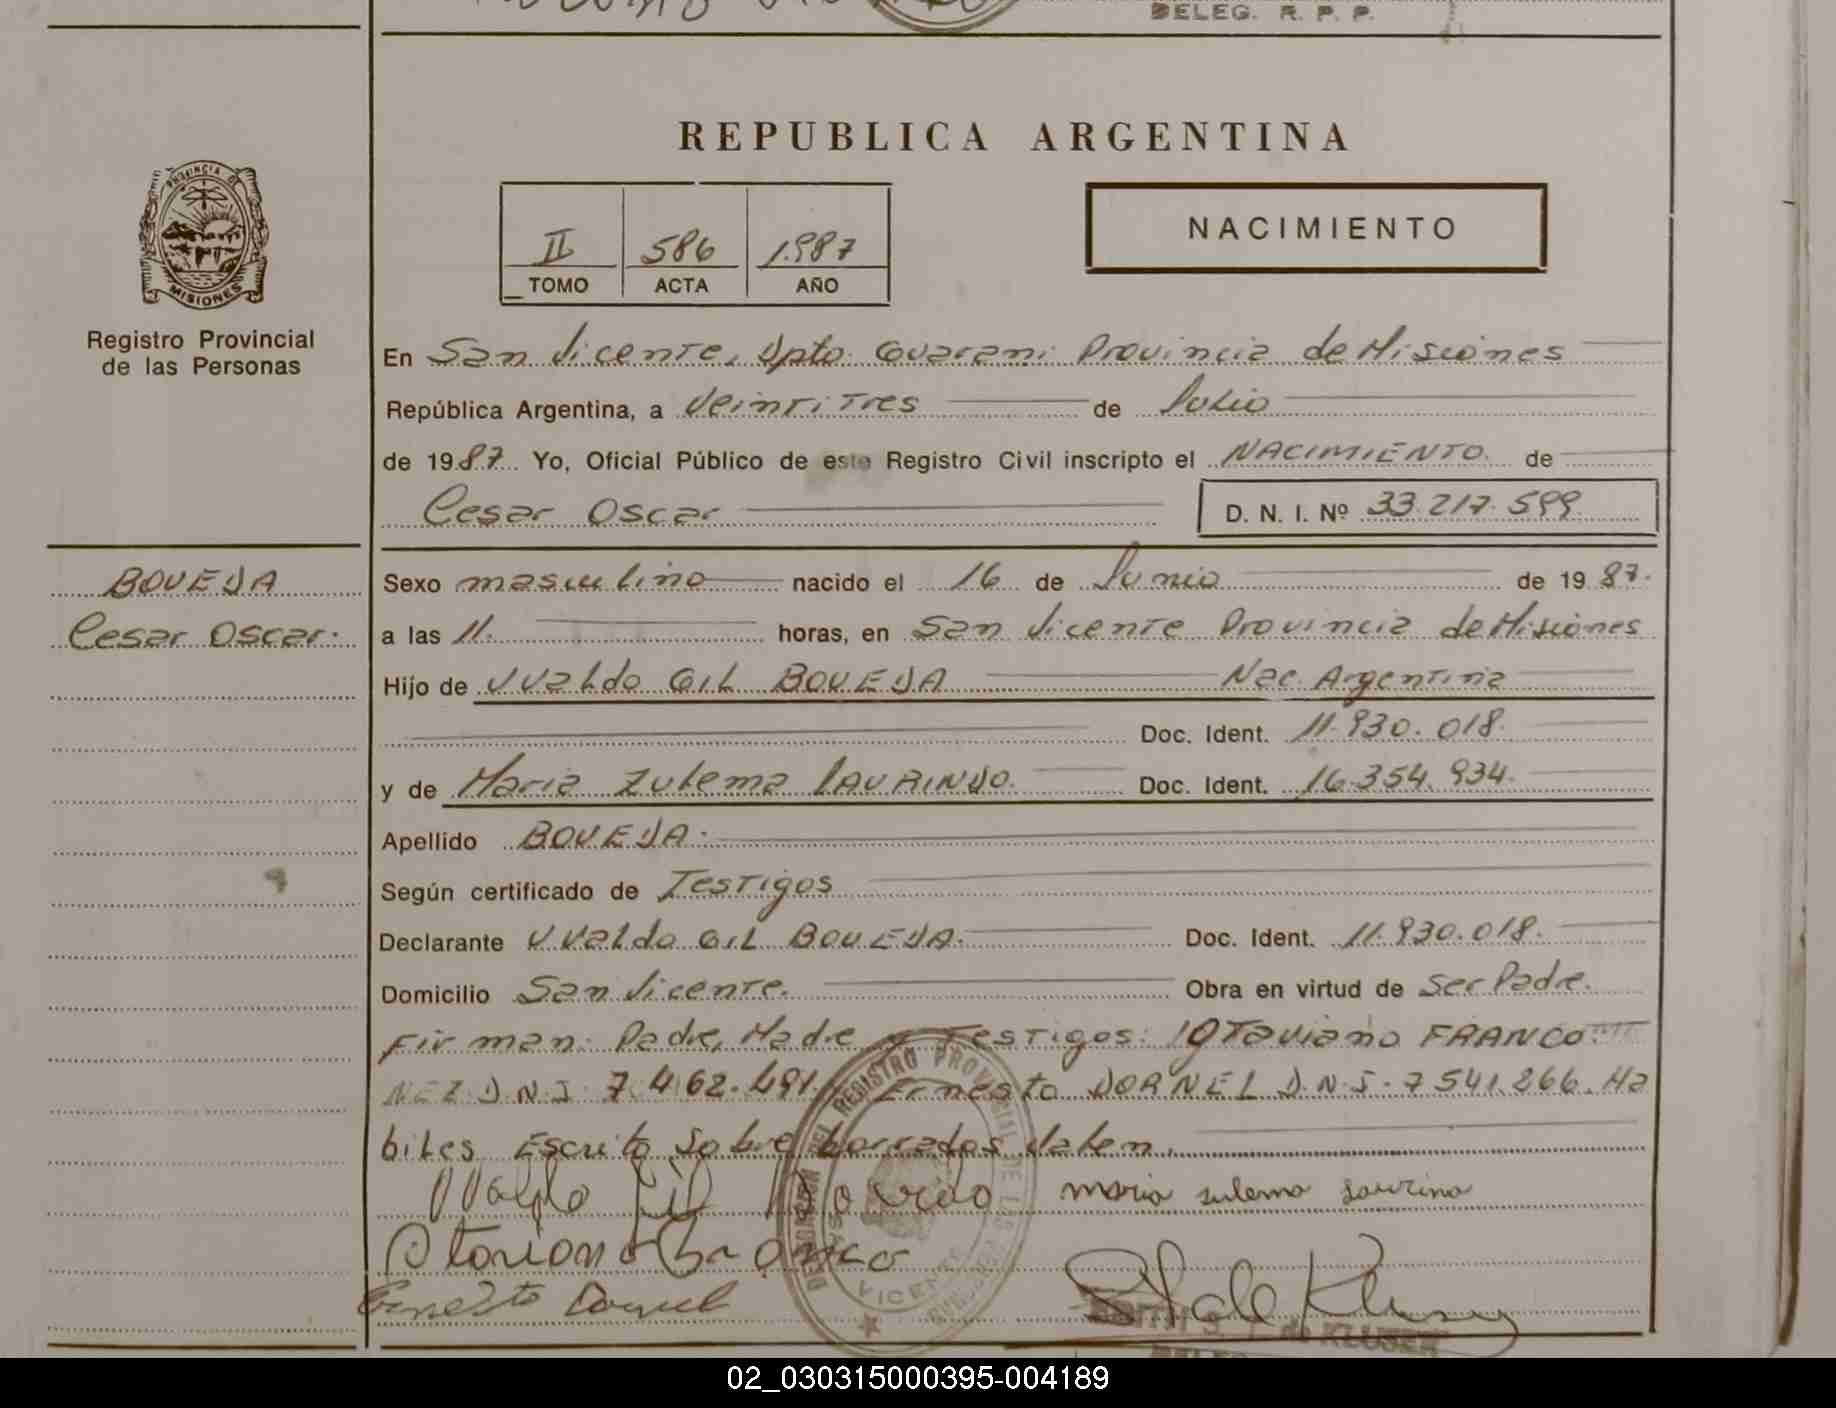 DELEG. R. P. P.
REPUBLICA ARGENTINA
PROVINCIA DE
MISIONES
Registro Provincial
de las Personas
II 586 1.987
TOMO ACTA AÑO
NACIMIENTO
En San Vicente, Dpto. Guarani Provincia de Misiones
República Argentina, a Veintitres de Julio
de 1987 Yo, Oficial Público de este Registro Civil inscripto el NACIMIENTO de
Cesar Oscar D. N. I. Nº 33.217.599
BOVEDA
Cesar Oscar.
Sexo masculino nacido el 16 de Junio de 1987.
a las 11. horas, en San Vicente Provincia de Misiones
Hijo de UValdo GIL BOVEDA Nac. Argentina
Doc. Ident. 11.930.018.
y de Maria Zulema LAURINDO. Doc. Ident. 16.354.934.
Apellido BOVEDA.
Según certificado de Testigos
Declarante UValdo GIL BOVEDA. Doc. Ident. 11.930.018.
Domicilio San Vicente. Obra en virtud de Ser Padre.
Firman: Padre, Madre y Testigos: Otaviano FRANCO
NEZ D.N.I. 7.462.491. Ernesto DORNEL D.N.I. 7541.266. Ha
biles Escrito Sobre borrados Valen.
Uvaldo Gil Boveda maria sulema laurino
Otaviano Franco
Ernesto Dornel
REGISTRO PROVINCIAL DE LAS
VICENTE
de KLUSER
02_030315000395-004189